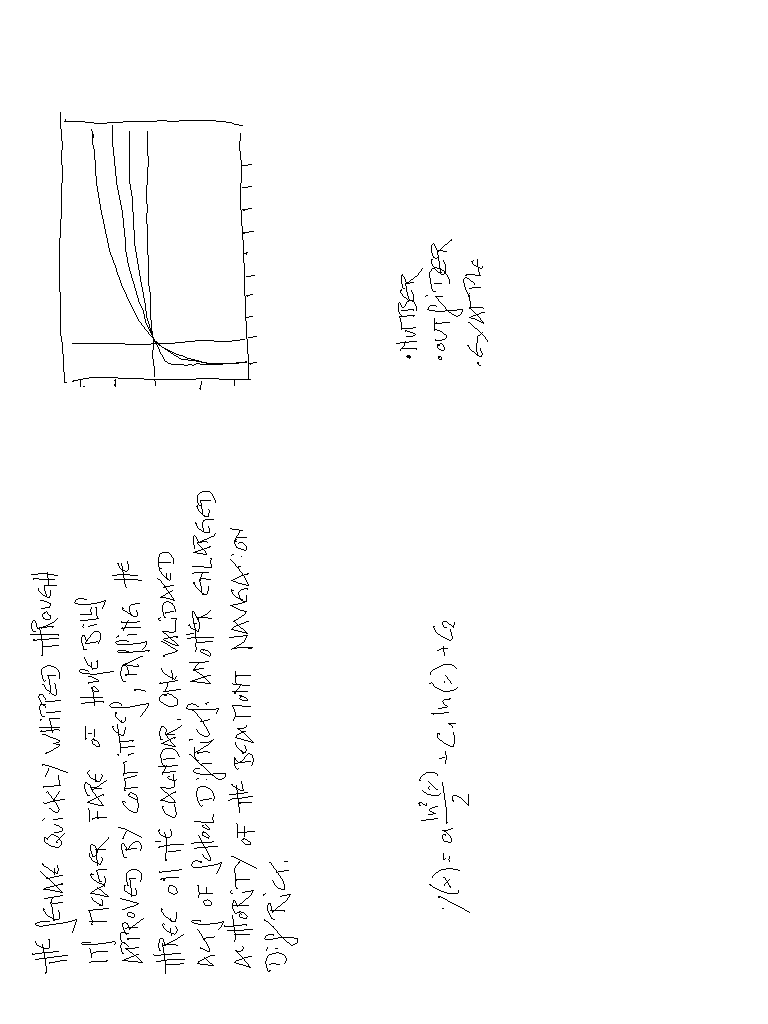 THE SENATE QUICKLY WHIPPED THROUGH
ITS MEAGER FARE OF HOUSE BILLS
APPROVED BY COMMITTEES, PASSING THE
THREE ON THE CALENDAR. ONE VALIDATED
ACTS OF SCHOOL DISTRICTS. ANOTHER ENLARGED
AUTHORITY OF THE BEAUMONT NAVIGATION
DISTRICT.
• NUMBER
• OUTSIDER
• EXAMPLE
y(x) = a ln²(x)/2 + C₁ ln(x) + C₂